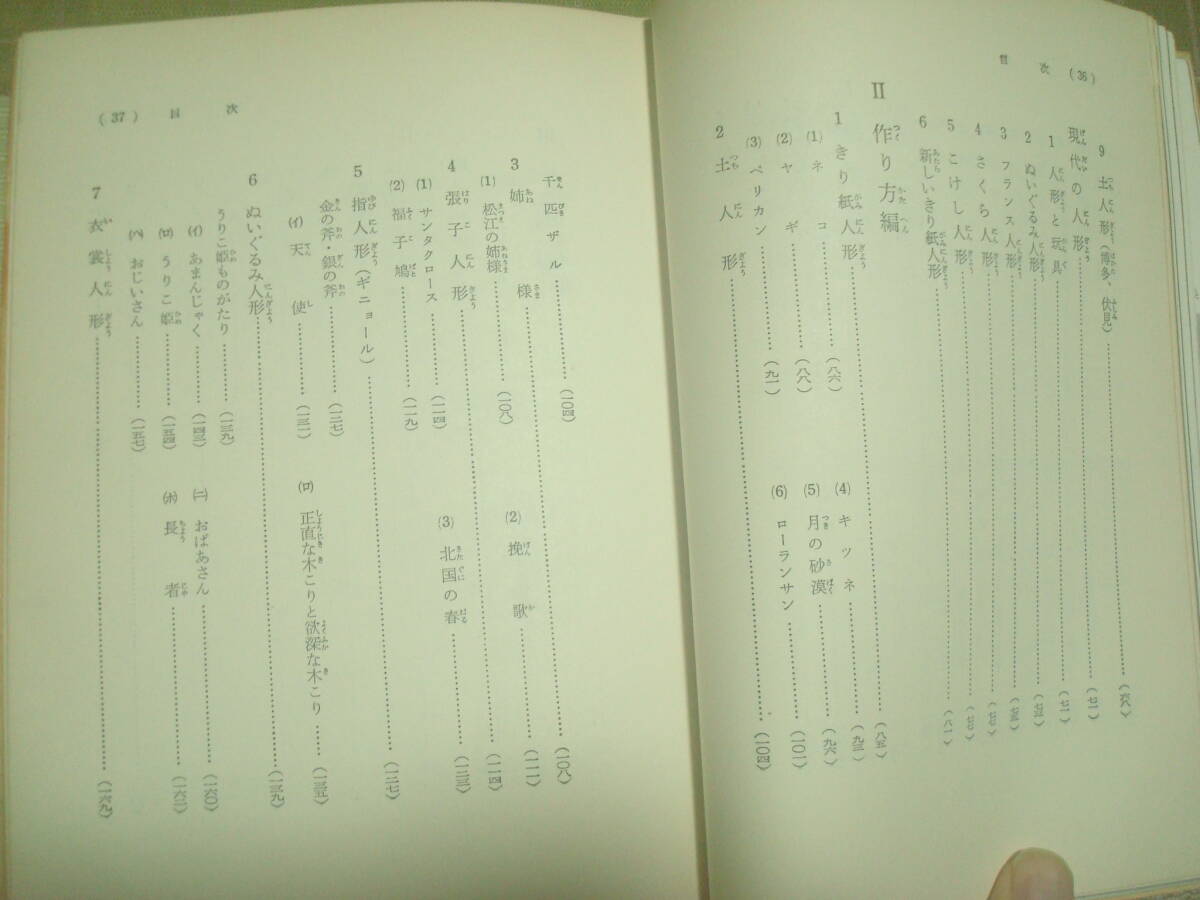 目次 (36)
9 土人形(博多、伏見)………(六八)
現代の人形………(七一)
1 人形と玩具………(七一)
2 ぬいぐるみ人形………
3 フランス人形………
4 さくら人形………
5 こけし人形………
6 新しいきり紙人形………(八一)
II 作り方編………(八五)
1 きり紙人形………(九三)
(1) ネコ………(八六)
(4) キツネ………(九三)
(2) ヤギ………(八八)
(5) 月の砂漠………(九六)
(3) ペリカン………(九一)
(6) ローランサン………(一〇一)
2 土人形………(一〇四)
(37) 目次
千匹ザル………(一〇四)
3 姉様………(一〇八)
(1) 松江の姉様………(一〇八)
(2) 挽歌………(一一一)
4 張子人形………(一一四)
(1) サンタクロース………(一一四)
(3) 北国の春………(一二三)
(2) 福子鳩………(一一九)
5 指人形(ギニョール)………(一二七)
金の斧・銀の斧………(一二七)
(イ) 天使………(一三一)
(ロ) 正直な木こりと欲深な木こり……(一三五)
6 ぬいぐるみ人形………(一三九)
うりこ姫ものがたり………(一三九)
(イ) あまんじゃく………(一四三)
(ニ) おばあさん………(一六〇)
(ロ) うりこ姫………(一五四)
(ホ) 長者………(一六三)
(ハ) おじいさん………(一五七)
7 衣裳人形………(一六九)